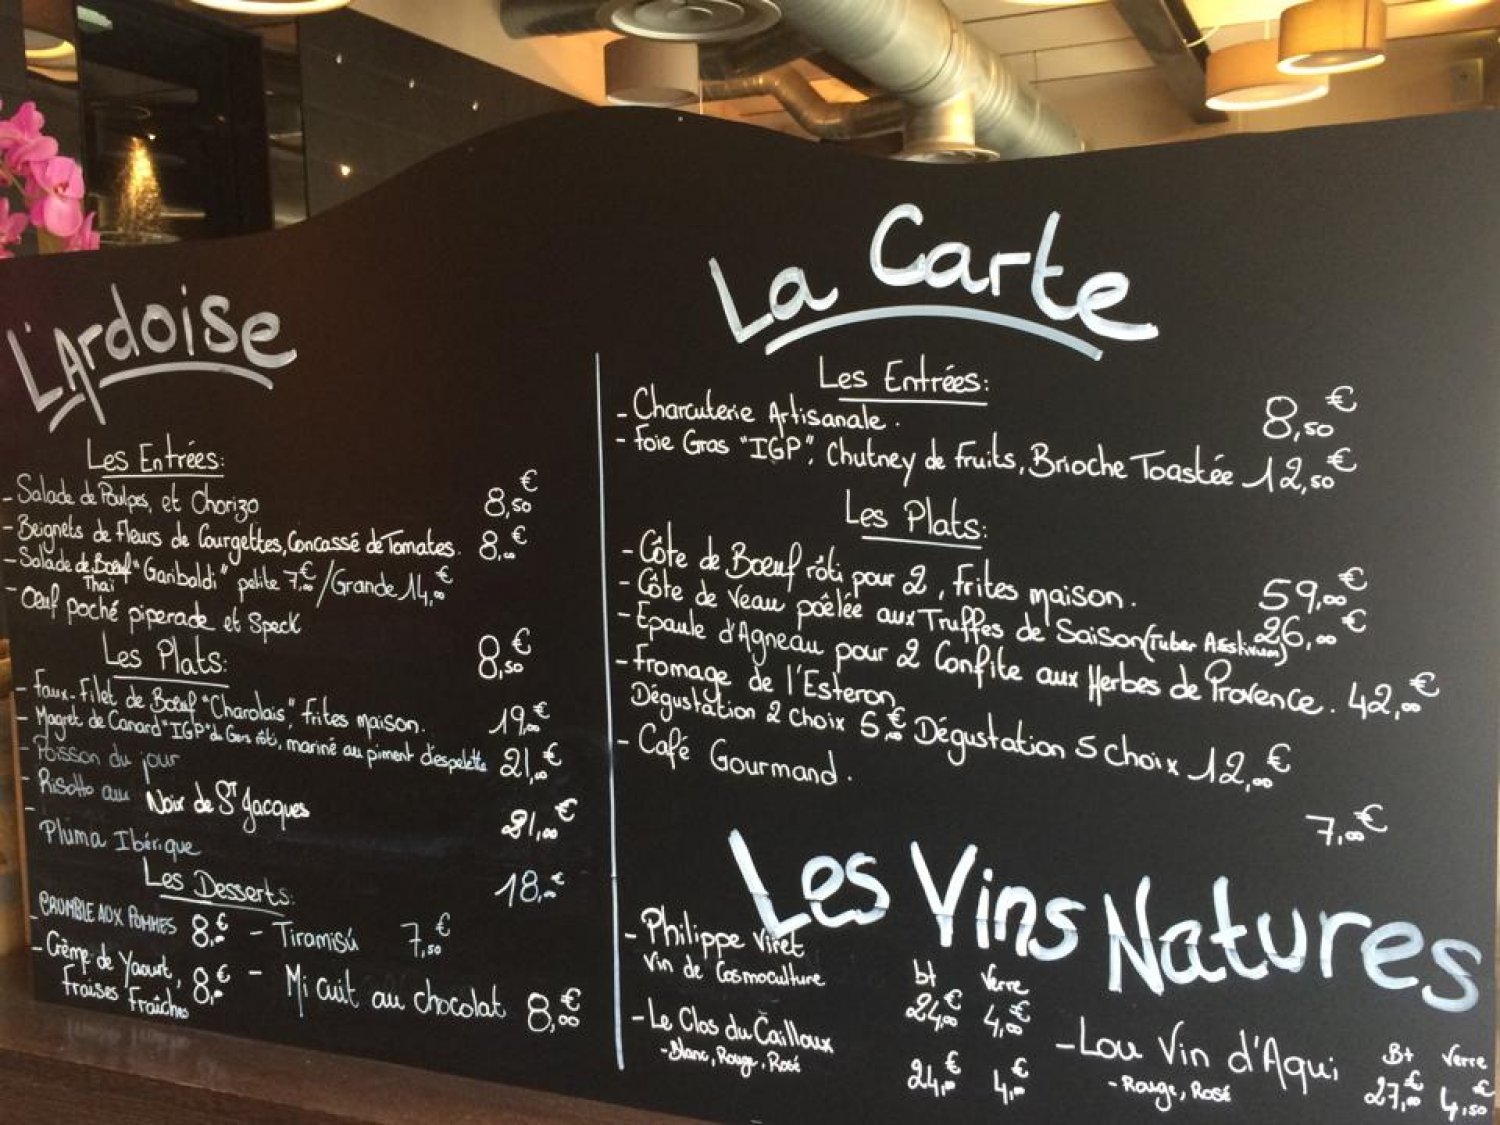 L'Ardoise
Les Entrées:
- Salade de Poulpes, et Chorizo 8,50€
- Beignets de fleurs de Courgettes, Concassé de Tomates. 8,00€
- Salade de Bœuf "Garibaldi" petite 7,00€/Grande 14,00€
Thaï
- Œuf poché piperade et Speck 8,50€
Les Plats:
- Faux-Filet de Bœuf "Charolais", frites maison. 19,00€
- Magret de Canard "IGP" du Gers rôti, mariné au piment d'espelette 21,00€
- Poisson du jour
- Risotto aux Noix de St Jacques 21,00€
- Pluma Ibérique 18,00€
Les Desserts:
- CRUMBLE AUX POMMES 8,00€ - Tiramisú 7,50€
- Crème de Yaourt, 8,00€ - Mi cuit au chocolat 8,00€
fraises fraîches
La Carte
Les Entrées:
- Charcuterie Artisanale. 8,50€
- Foie Gras "IGP", Chutney de Fruits, Brioche Toastée 12,50€
Les Plats:
- Côte de Bœuf rôti pour 2, frites maison. 59,00€
- Côte de Veau poêlée aux Truffes de Saison (Tuber Aestivum) 26,00€
- Epaule d'Agneau pour 2 Confite aux Herbes de Provence. 42,00€
- Fromage de l'Esteron
Dégustation 2 choix 5,00€ Dégustation 5 choix 12,00€
- Café Gourmand. 7,00€
Les Vins Natures
- Philippe Viret
Vin de Cosmoculture
bt Verre
24,00€ 4,00€
- Le Clos du Cailloux
- Blanc, Rouge, Rosé
24,00€ 4,00€
- Lou Vin d'Aqui
- Rouge, Rosé
Bt Verre
27,00€ 4,50€